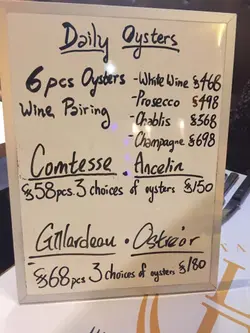 Daily Oysters
6pcs Oysters Wine Pairing
- White Wine $468
- Prosecco $498
- Chablis $368
- Champagne $698
Comtesse . Ancelin
$58pcs. 3 choices of oysters $150
Gillardeau . Ostréor
$68pcs 3 choices of oysters $180